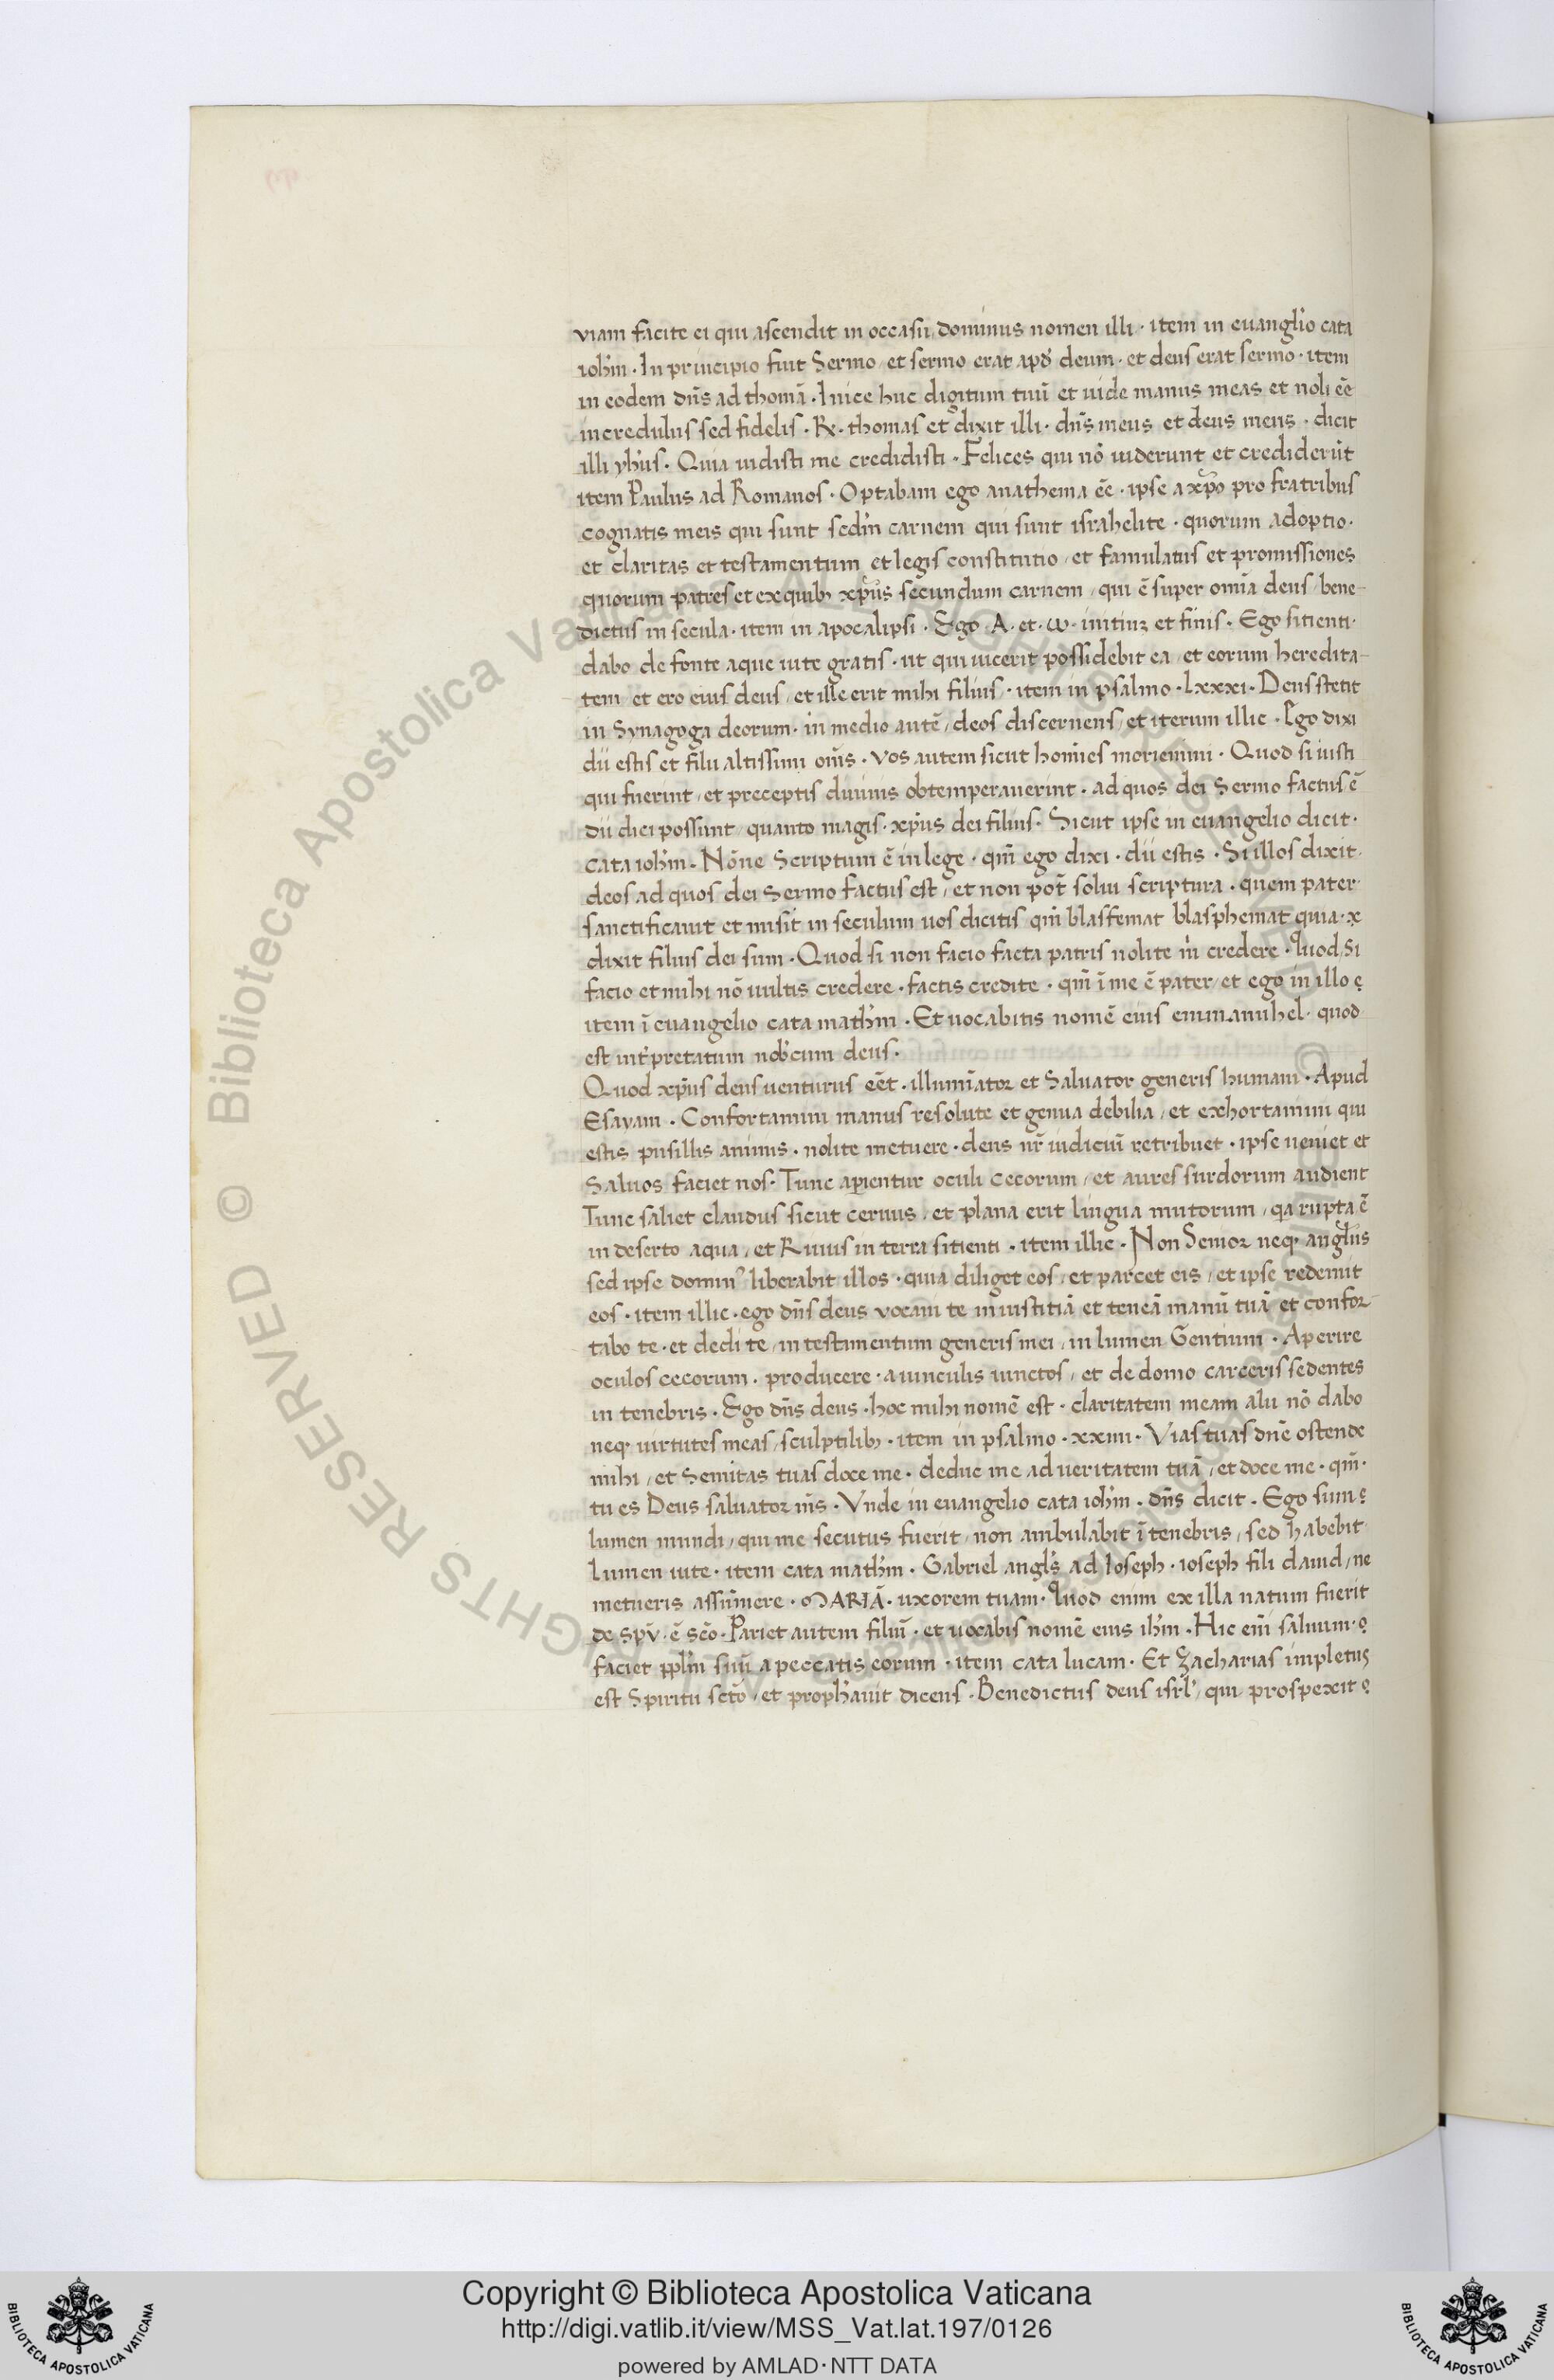 viam facite ei qui ascendit in occasu dominus nomen illi · item in euangl'io cata
ioh'm · In principio fuit Sermo / et sermo erat apđ deum · et deus erat sermo · item
in eodem dn̄s ad thomā · Inice huc digitum tuū et uide manus meas et noli ēē
incredulus sed fidelis · R̵x · thomas et dixit illi · dn̄s meus et deus meus · dicit
illi yh'us · Quia uidisti me credidisti · Felices qui nō uiderunt et crediderūt
item Paulus ad Romanos · Optabam ego anathema ēē · ipse a xp̄o pro fratribus
cognatis meis qui sunt scd'm carnem qui sunt israhelite · quorum adoptio ·
et claritas et testamentum et legis constitutio / et famulatus et promissiones
quorum patres et ex quib; xp̄us secundum carnem / qui ē super om̄ia deus / bene-
dictus in secula · item in apocalipsi · Ego · A · et · ω · initiuz et finis · Ego sitienti ·
dabo de fonte aque uite gratis · ut qui uicerit possidebit ea / et eorum heredita-
tem / et ero eius deus / et ille erit mihi filius · item in psalmo · lxxxi · Deus stetit
in Synagoga deorum · in medio autē / deos discernens / et iterum illic · Ego dixi
dii estis et filii altissimi om̄s · vos autem sicut hom̄ies moriemini · Quod si iusti
qui fuerint / et preceptis diuinis obtemperauerint · ad quos dei Sermo factus ē
dii dici possunt / quanto magis · xp̄us dei filius · Sicut ipse in euangelio dicit ·
cata ioh'm · Nōne Scriptum ē in lege · qm̄ ego dixi · dii estis · Si illos dixit ·
deos ad quos dei Sermo factus est / et non pot̄ solui scriptura · quem pater ·
sanctificauit et misit in seculum uos dicitis qm̄ blasfemat blasphemat quia · x
dixit filius dei sum · Quod si non facio facta patris nolite m̄ credere · Quod si
facio et mihi nō uultis credere · factis credite · qm̄ ī me ē pater / et ego in illo ę
item ī euangelio cata math'm · Et uocabitis nomē eius emmanuhel · quod
est int'pretatum nob'cum deus ·
Quod xp̄us deus uenturus eēt · illumīator et Saluator generis humani · Apud
Esayam · Confortamini manus resolute et genua debilia / et exhortamini qui
estis pusillis animis · nolite metuere · deus nr̄ iudiciū retribuet · ipse ueniet et
Saluos faciet nos · Tunc apientur oculi cecorum / et aures surdorum audient
Tunc saliet claudus sicut ceruus / et plana erit lingua mutorum / qa rupta ē
in deserto aqua / et Riuus in terra sitienti · item illic · Non Senior neq; angl'us
sed ipse domin' liberabit illos · quia diliget eos / et parcet eis / et ipse redemit
eos · item illic · ego dn̄s deus vocaui te in iustitiā et teneā manū tuā et confor-
tabo te · et dedi te / in testamentum generis mei / in lumen Gentium · Aperire
oculos cecorum · producere · a uinculis uinctos / et de domo carceris sedentes
in tenebris · Ego dn̄s deus · hoc mihi nomē est · claritatem meam alii nō dabo
neq; uirtutes meas / sculptilib; · item in psalmo · xxiiii · Vias tuas dn̄e ostende
mihi / et Semitas tuas doce me · deduc me ad ueritatem tuā / et doce me · qm̄ ·
tu es Deus saluator m̄s · Vnde in euangelio cata ioh'm · dn̄s dicit · Ego sum ę
lumen mundi / qui me secutus fuerit / non ambulabit ī tenebris / sed habebit
lumen uite · item cata math'm · Gabriel angl's ad Ioseph · ioseph fili dauid / ne
metueris assūmere · MARIĀ · uxorem tuam · Quod enim ex illa natum fuerit
de spū · ē scō · Pariet autem filiū · et uocabis nomē eius ih'm · Hic eīm saluum · ę
faciet ppl'm suū a peccatis eorum · item cata lucam · Et Zacharias impletus
est Spiritu sctō / et proph'auit dicens · Benedictus deus isrl' / qui prospexit ę
Copyright © Biblioteca Apostolica Vaticana
http://digi.vatlib.it/view/MSS_Vat.lat.197/0126
powered by AMLAD·NTT DATA